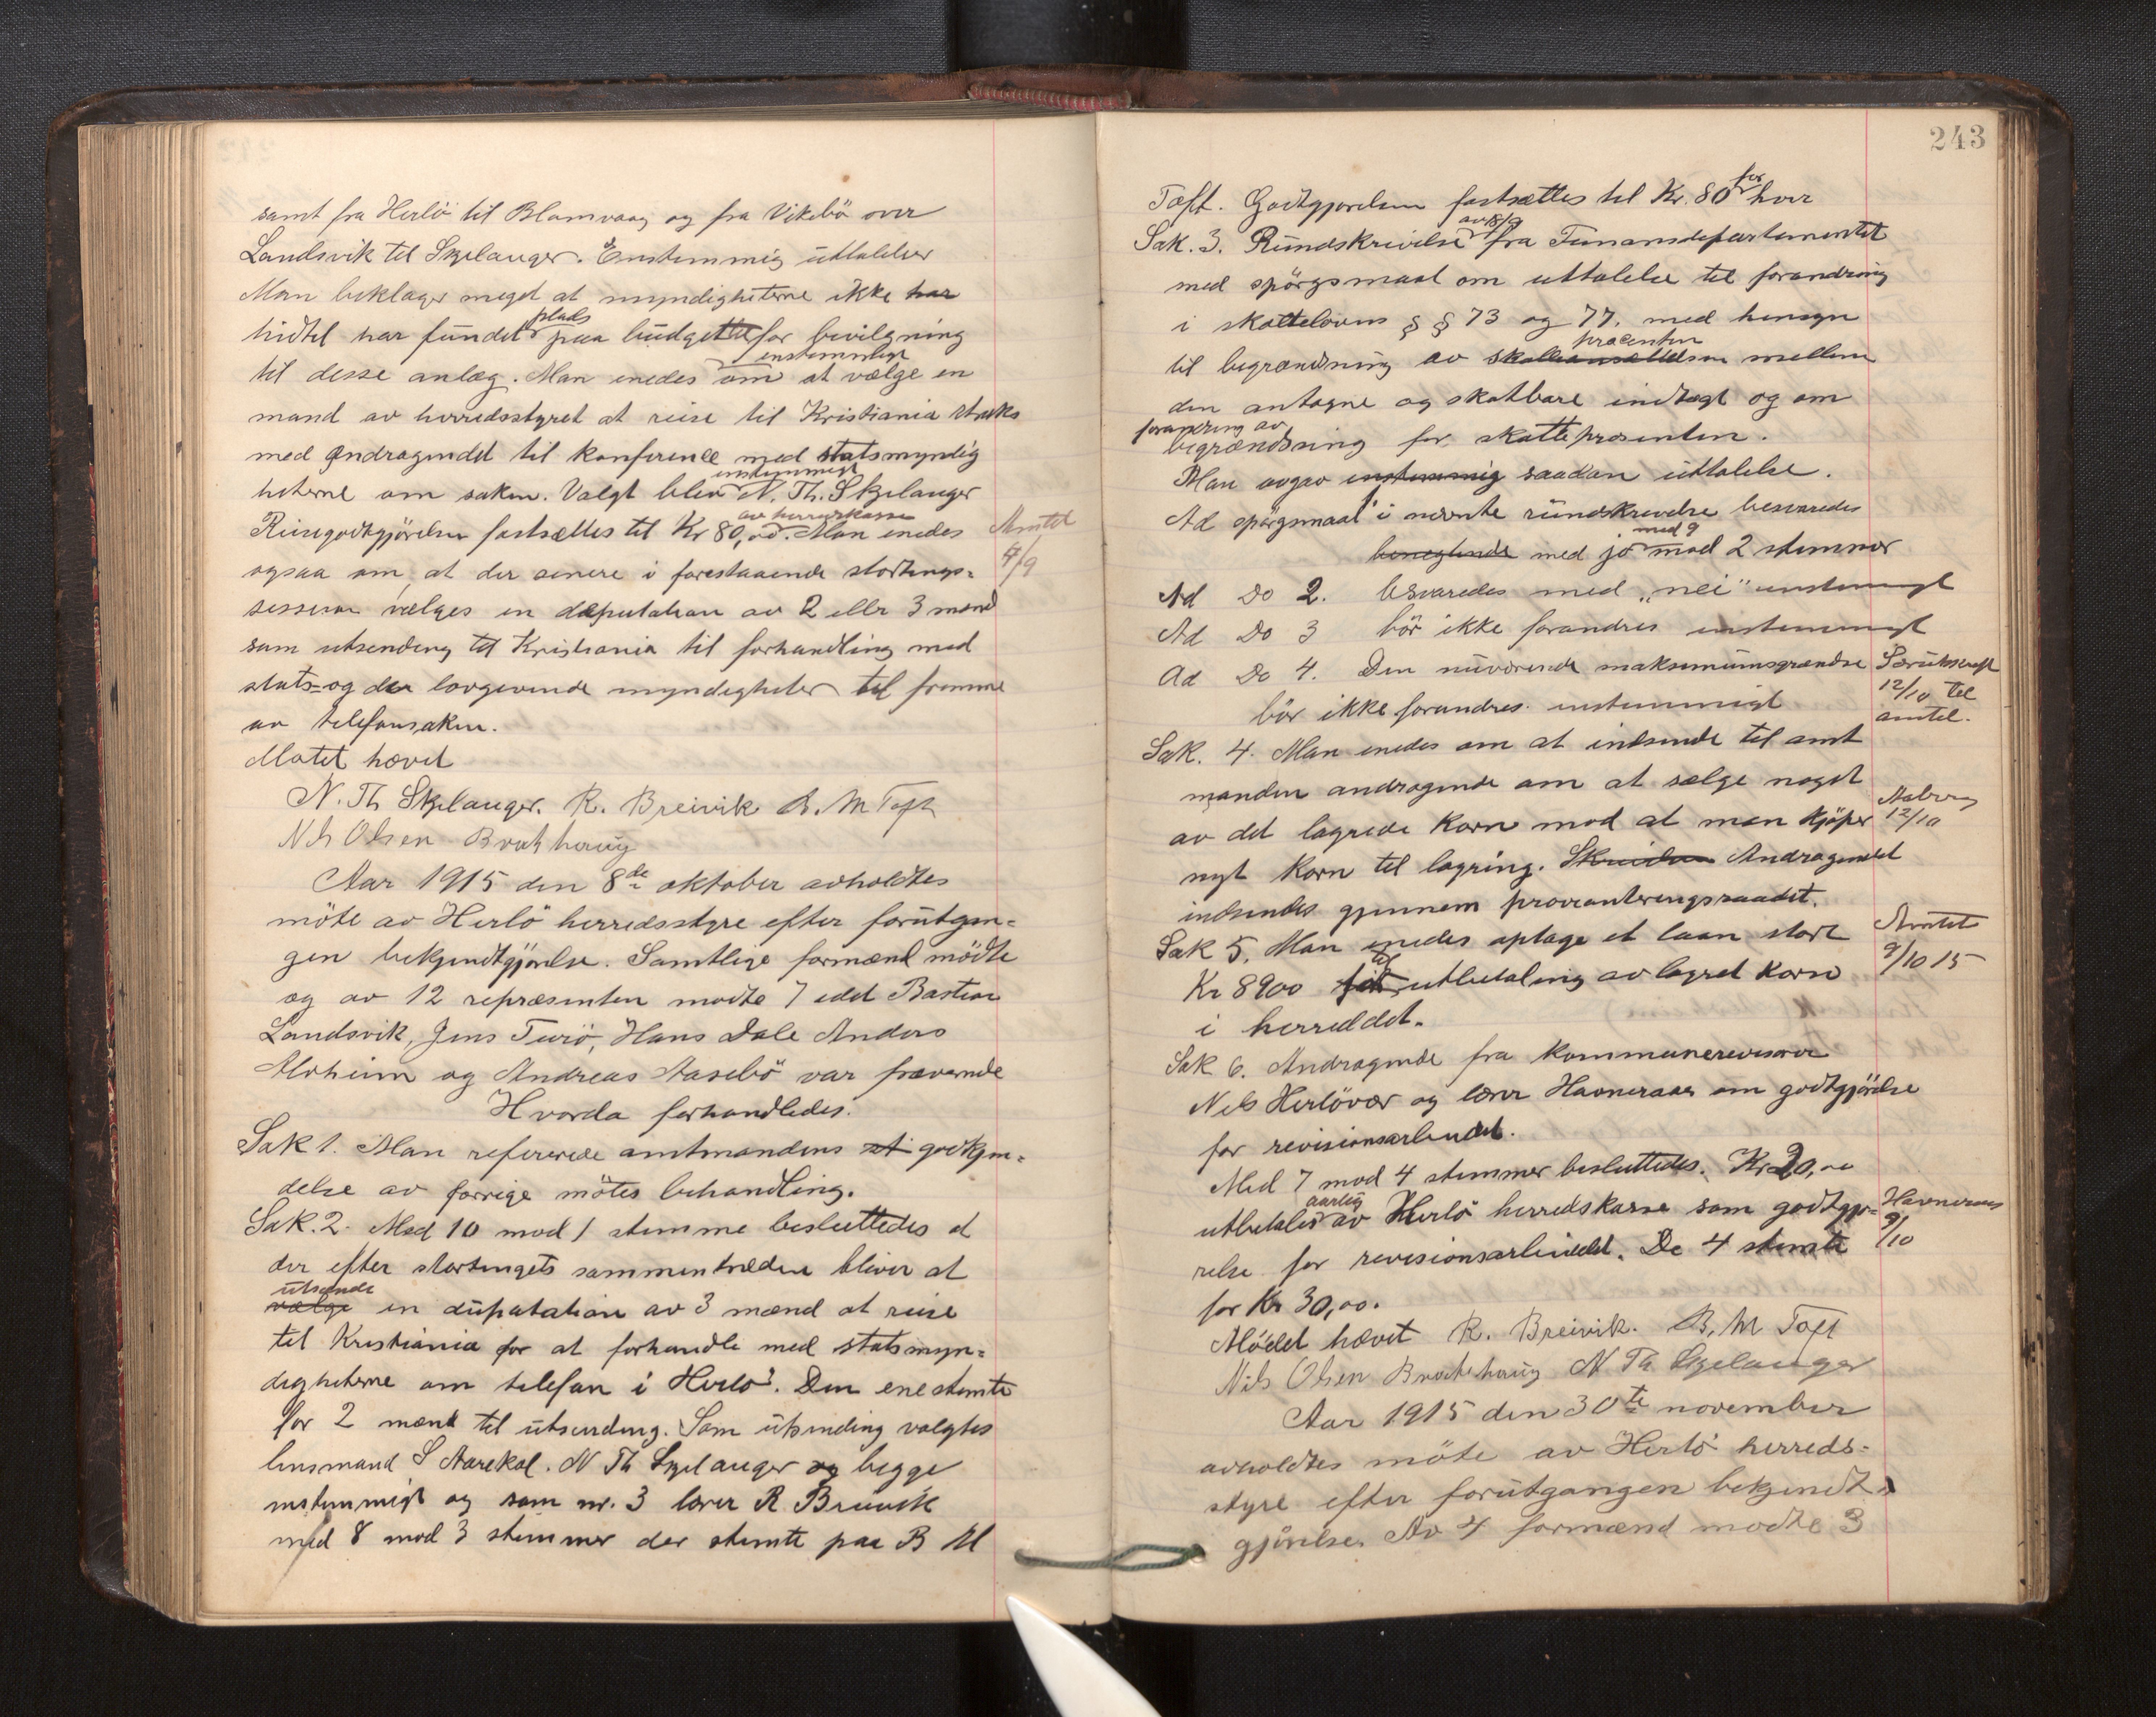 samt fra Herlö til Blomvaag og fra Vikebö over
Landsvik til Skjelanger. Enstemmig uttalelser
Man beklager meget at myndigheterne ikke har
hidtil har fundet plads paa budgettet for bevilgning
til desse anlæg. Man enedes enstemmigt om at vælge en
mand av herredsstyret at reise til Kristiania straks
med andragendet til konference med statsmyndig
heterne om saken. Valgt blev enstemmigt N. Th. Skjelanger
Reisegodtgjörelsen fastsættes til Kr 80,00 av herredskassen. Man enedes
Amtet
4/9
ogsaa om, at der senere i forestaaende stortings-
session vælges en deputation av 2 eller 3 mænd
som utsending til Kristiania til forhandling med
stats- og den lovgivende myndigheter til fremme
av telefonsaken.
Møtet hævet
N. Th Skjelanger. R. Breivik B. M Toft
Nils Olsen Brathaug
Aar 1915 den 8de oktober avholdtes
möte av Herlö herredsstyre efter forutgan-
gen bekjendtgjörelse. Samtlige formænd mödte
og av 12 repræsenten mødte 7 idet Bastian
Landsvik, Jens Turö, Hans Dale Anders
Alvheim og Andreas Aasebö var fraværende
Hvorda forhandledes.
Sak 1. Man refererede amtmandens at godkjen-
delse av forrige mötes behandling.
Sak. 2. Med 10 mod 1 stemme besluttedes at
der efter stortingets sammentræden bliver at
utsende
vælge en deputation av 3 mænd at reise
til Kristiania for at forhandle med statsmyn-
digheterne om telefon i Herlö. Den ene stemte
for 2 mænd til utsending. Som utsending valgtes
lensmand S Aarekol. N Th Skjelanger og begge
enstemmigt og som nr. 3 lærer R Breivik
med 8 mod 3 stemmer der stemte paa B M
243
Toft. Godtgjorelsen fastsættes til Kr. 80 for hver
Sak. 3. Rundskrivelse av 18/9 fra Finansdepartementet
med spörgsmaal om uttalelse til forandring
i skatteloven § § 73 og 77. med hensyn
til begrændsning av skatteansættelsen procenten mellem
den antagne og skatbare indtægt og om
forandring av
begrændsning for skatteprosenten.
Man avgav enstemmig saadan uttalelse.
Ad spörgsmaal 1 i nævnte rundskrivelse besvaredes
benegtende med ja med 9 mod 2 stemmer
Ad Do 2. besvaredes med „nei" enstemmigt
Ad Do 3 bör ikke forandres enstemmigt
Ad Do 4. Den nuværende maksimumsgrændse
Særutskrift
12/10 til
amtet.
bör ikke forandres enstemmigt
Sak. 4. Man enedes om at indsende til amt
manden andragende om at sælge noget
av det lagrede korn mod at man kjöper
12/10
nyt korn til lagring. Skrivelsen Andragendet
indsendes gjennem provianteringsraadet.
Sak 5. Man enedes optage et laan stort
Amtet
9/10 15
Kr 8900 til utbetaling av lagret korn
i herreddet.
Sak 6. Andragende fra kommunerevisorer
Nils Herlövær og lærer Havneraas om godtgjörelse
for revisionsarbeidet.
Med 7 mod 4 stemmer besluttedes. Kr 20,00
utbetales aarlig av Herlö herredskasse som godtgjö-
Havneraas
9/10
relse for revisionsarbeidet. De 4 stemte
for Kr 30,00.
Mödet hævet R. Breivik. B. M Toft
Nils Olsen Brathaug N Th Skjelanger
Aar 1915 den 30te november
avholdtes möte av Herlö herreds-
styre efter forutgangen bekjendt-
gjörelse. Av 4 formænd mødte 3